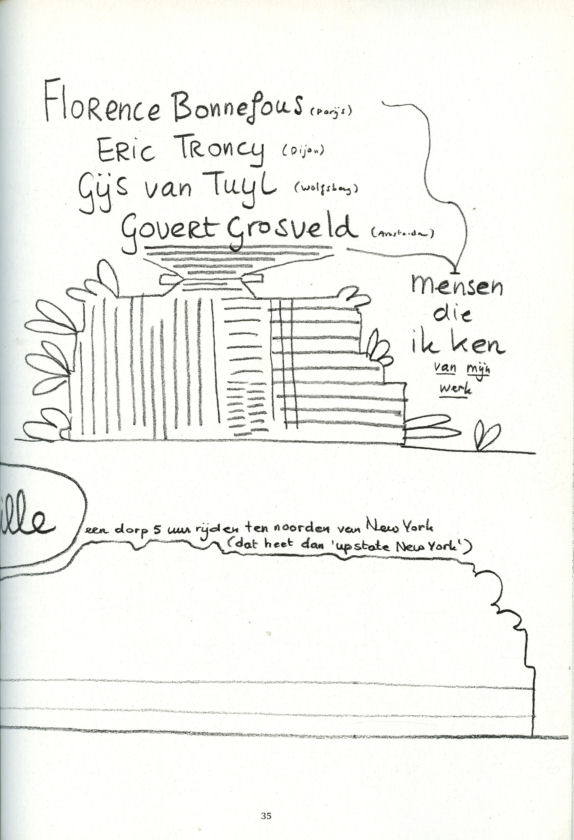 Florence Bonnefous (Parijs)
Eric Troncy (Dijon)
Gijs van Tuyl (Wolfsburg)
Govert Grosveld (Amsterdam)
mensen
die
ik ken
van mijn
werk
ille
een dorp 5 uur rijden ten noorden van New York
(dat heet dan 'upstate New York')
35